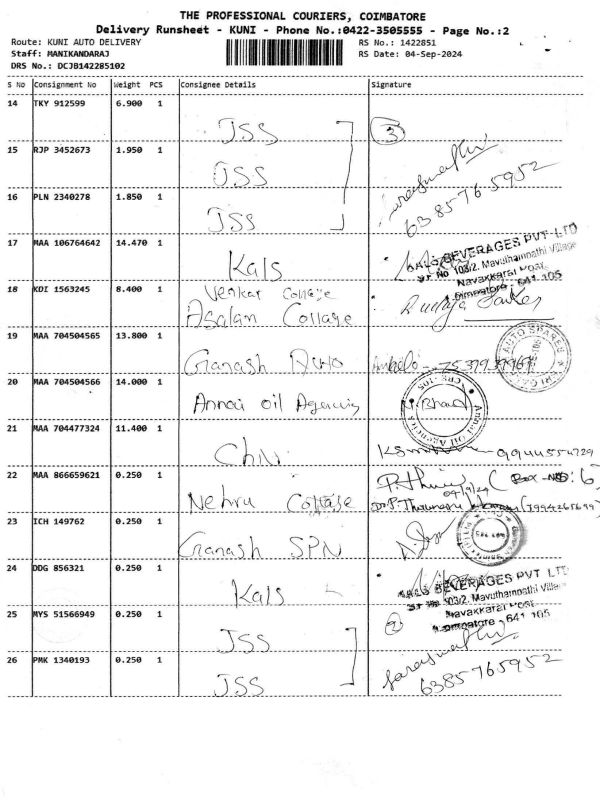 THE PROFESSIONAL COURIERS, COIMBATORE
Delivery Runsheet - KUNI - Phone No.:0422-3505555 - Page No.:2
Route: KUNI AUTO DELIVERY RS No.: 1422851
Staff: MANIKANDARAJ RS Date: 04-Sep-2024
DRS No.: DCJB142285102
S No Consignment No Weight PCS Consignee Details Signature
14 TKY 912599 6.900 1 JSS 3
15 RJP 3452673 1.950 1 JSS
16 PLN 2340278 1.850 1 JSS 6385765952
17 MAA 106764642 14.470 1 Kals
KALS BEVERAGES PVT-LTD
S.F. No 103/2, Mavuthampathi Village
Navakkarai Post,
Coimbatore - 641 105
18 KDI 1563245 8.400 1 Venkar Collage
Asalam Collage
19 MAA 704504565 13.800 1 Ganash Auto
AUTO SPARES
20 MAA 704504566 14.000 1 Annai oil Agenciy
21 MAA 704477324 11.400 1 Chn 9944554729
22 MAA 866659621 0.250 1 Nehru Collage
04/9/24 (Box-NO: 6)
23 ICH 149762 0.250 1 Ganash SPN
24 DDG 856321 0.250 1 Kals
KALS BEVERAGES PVT LTD
S.F. No 103/2, Mavuthampathi Village
Navakkarai Post
Coimbatore - 641 105
25 MYS 51566949 0.250 1 JSS 2
26 PMK 1340193 0.250 1 JSS 6385765952